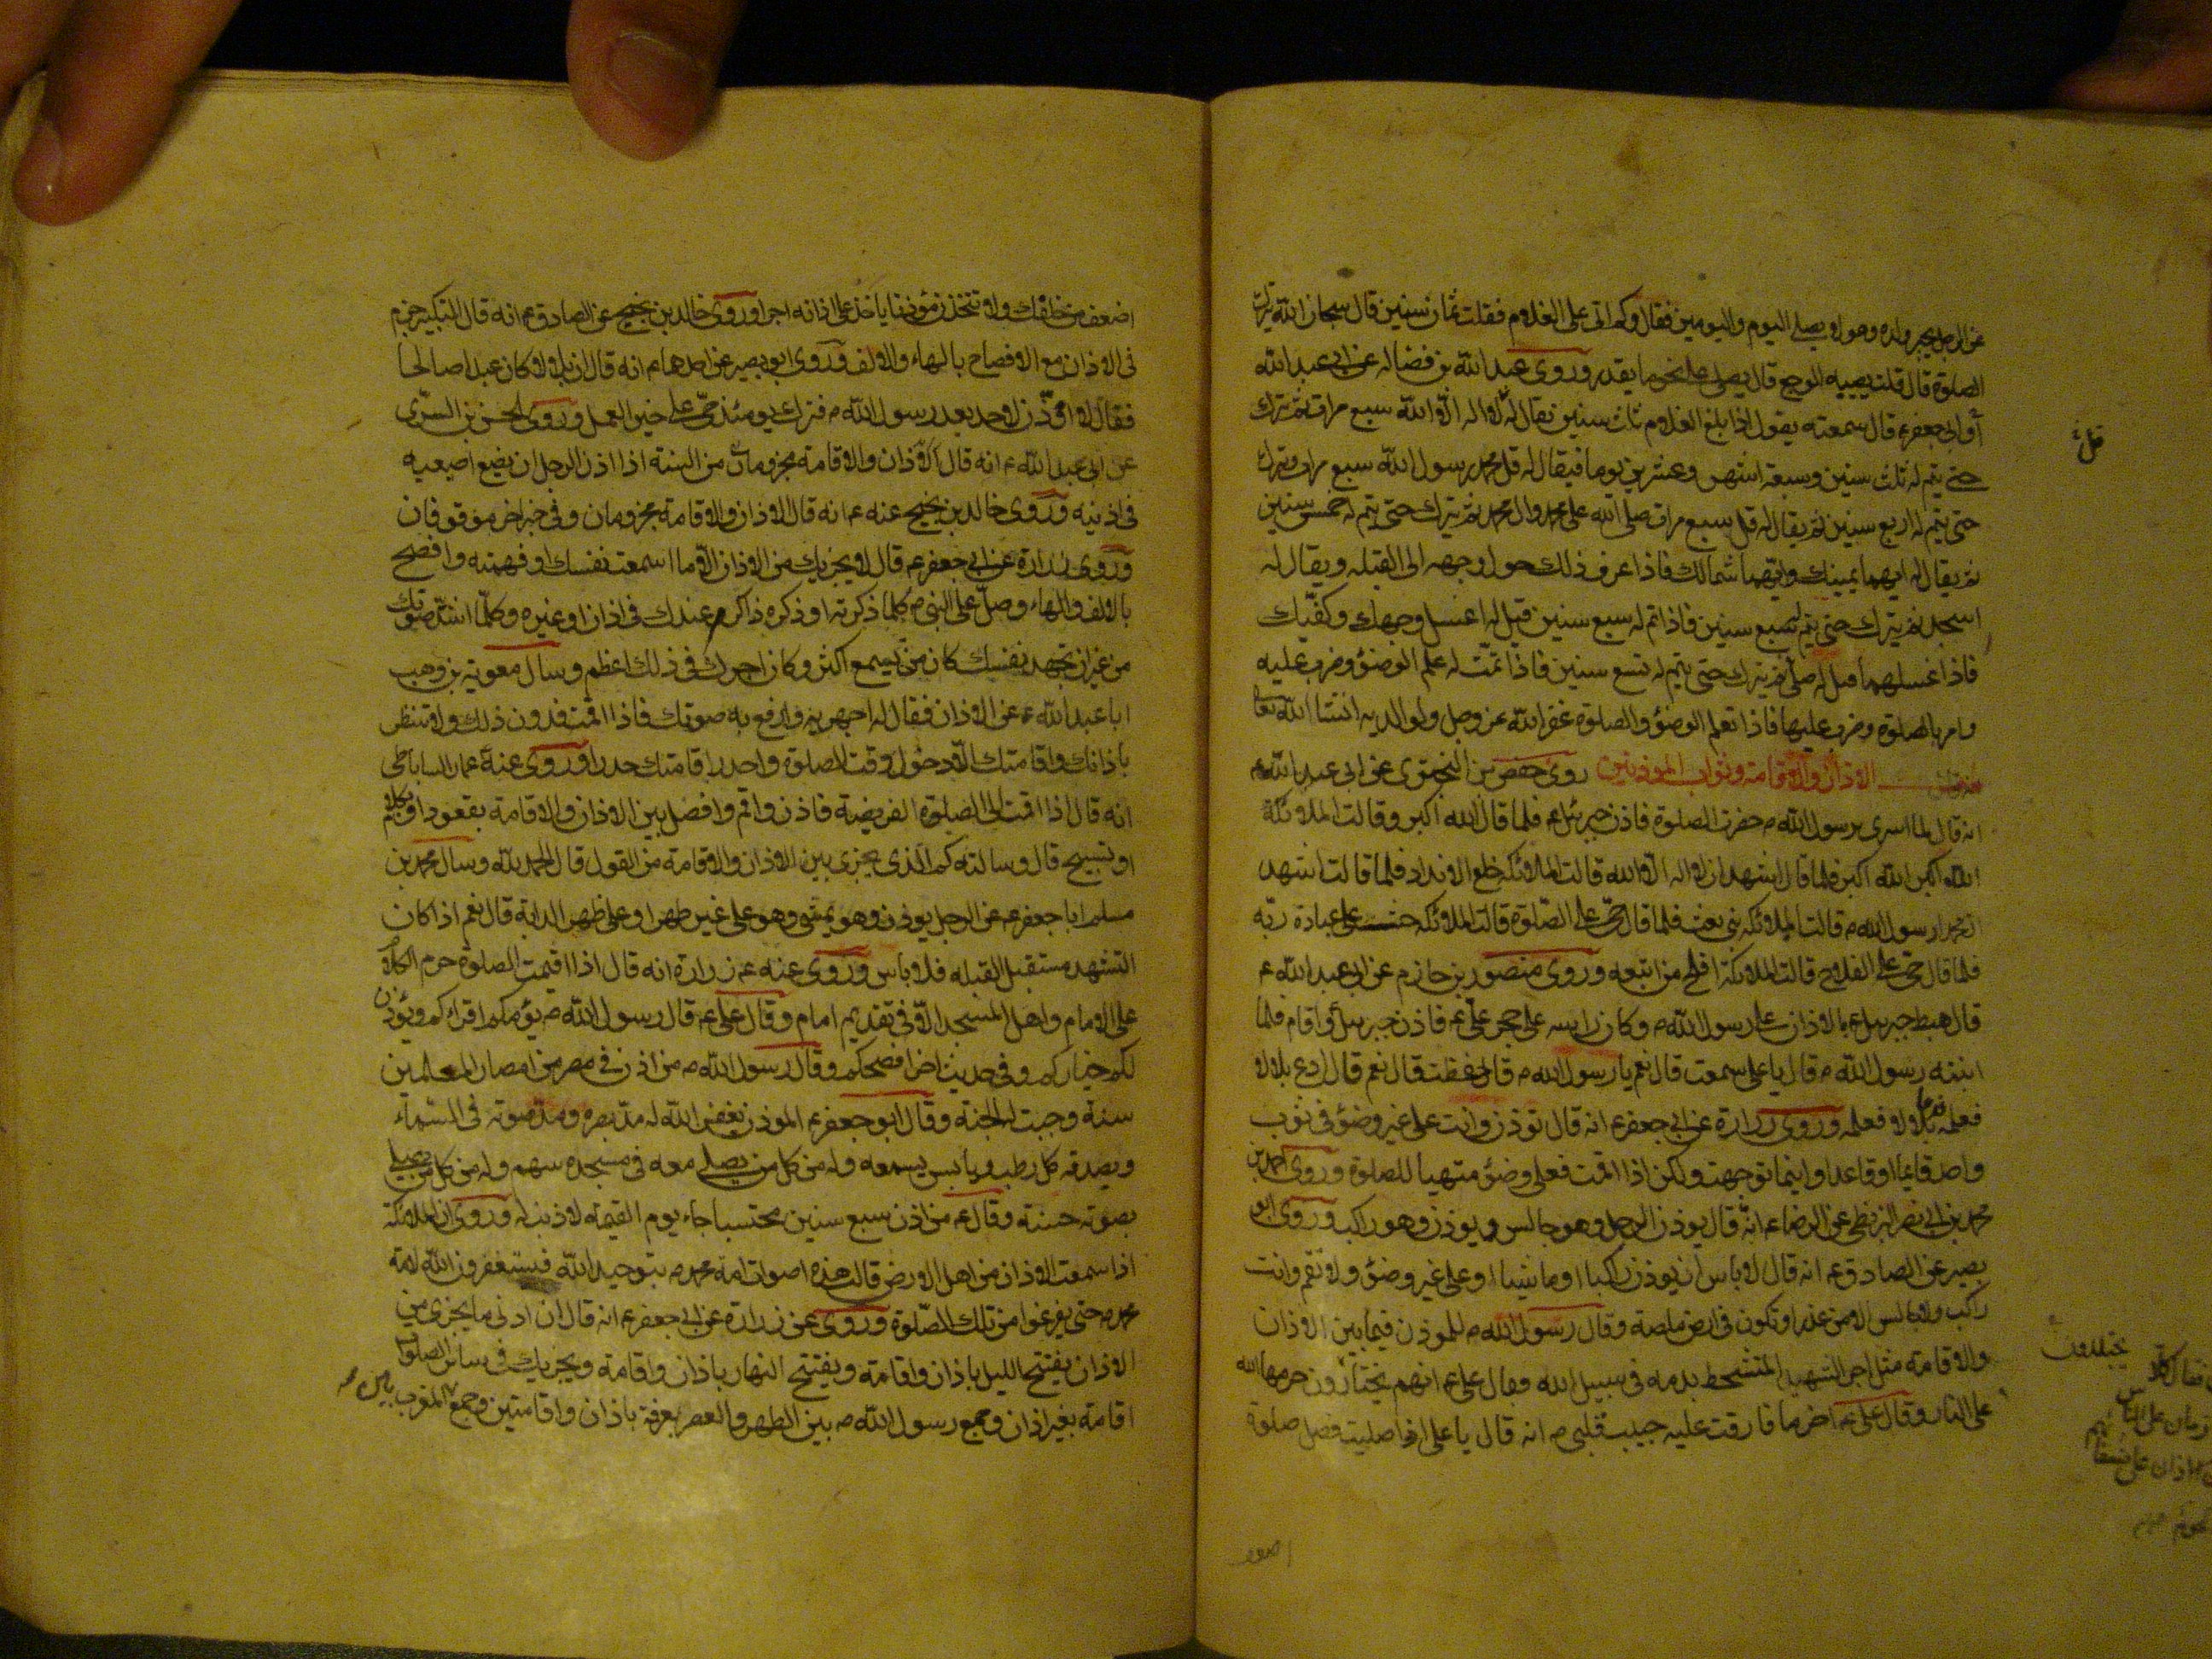 عن الرجل يجبر ولده وهو لا يصلى اليوم واليومين فقال وكم اتى على الغلام فقلت ثمان سنين قال سبحان الله يترك
الصلوة قال قلت يصيبه الوجع قال يصلى على نحو ما يقدر وروى عبد الله بن فضاله عن ابى عبد الله
او ابى جعفر ع قال سمعته يقول اذا بلغ الغلام ثلث سنين يقال له قل لا اله الا الله سبع مرات ثم يترك
حتى يتم له ثلث سنين وسبعة اشهر وعشرين يوما فيقال له قل محمد رسول الله سبع مرات ويترك
حتى يتم له اربع سنين ثم يقال له قل سبع مرات صلى الله على محمد وال محمد ثم يترك حتى يتم له خمس سنين
ثم يقال له ايهما يمينك وايهما شمالك فاذا عرف ذلك حول وجهه الى القبله ويقال له
اسجد ثم يترك حتى يتم له سبع سنين فاذا تم له سبع سنين قيل له اغسل وجهك وكفيك
فاذا غسلهما قيل له صل ثم يترك حتى يتم له تسع سنين فاذا تمت له علم الوضوء وضرب عليه
وامر بالصلوة وضرب عليها فاذا تعلم الوضوء والصلوة غفر الله عز وجل ولوالديه انشا الله تعا
الاذان والاقامة وثواب المؤذنين روى حفص بن البخترى عن ابى عبد الله ع
انه قال لما اسرى برسول الله ص حضرت الصلوة فاذن جبرئيل ع فلما قال الله اكبر وقالت الملائكة
الله اكبر الله اكبر فلما قال اشهد ان لا اله الا الله قالت الملائكه خلع الانداد فلما قالت اشهد
ان محمدا رسول الله ص قالت الملائكه نبى بعث فلما قال حى على الصلوة قالت الملائكه حث على عبادة ربه
فلما قال حى على الفلاح قالت الملائكة افلح من اتبعه وروى منصور بن حازم عن ابى عبد الله ع
قال هبط جبرئيل ع بالاذان على رسول الله ص وكان راسه على حجر على ع فاذن جبرئيل واقام فلما
انتبه رسول الله ص قال يا على سمعت قال نعم يا رسول الله ص قال حفظت قال نعم قال ادع بلالا
فعلمه فدعا بلالا فعلمه وروى زرارة عن ابى جعفر ع انه قال تؤذن وانت على غير وضوء فى ثوب
واحد قايما او قاعدا واينما توجهت ولكن اذا اقمت فعلى وضوء متهيا للصلوة وروى احمد بن
محمد بن ابى نصر البزنطى عن الرضا ع انه قال يوذن الرجل وهو جالس ويوذن وهو راكب وروى ابو
بصير عن الصادق ع انه قال لا باس ان يوذن راكبا او ماشيا او على غير وضوء ولا تقم وانت
راكب ولا جالس الا من عذر او تكون فى ارض ملصة وقال رسول الله ص للموذن فيما بين الاذان
والاقامة مثل اجر الشهيد المتشحط بدمه فى سبيل الله فقال على ع انهم يختارون
على الاذان وقال على ع اخر ما فارقت عليه حبيب قلبى ص انه قال يا على اذا صليت فصل صلوة
قل
يجتلدون
اضعف
اضعف من خلفك ولا تتخذن مؤذنا ياخذ على اذانه اجرا وروى خالد بن نجيح عن الصادق ع انه قال التكبير جزم
فى الاذان مع الافصاح بالهاء والالف وروى ابو بصير عن احدهما ع انه قال ان بلالا كان عبدا صالحا
فقال لا اوذن لاحد بعد رسول الله ص فترك يومئذ حى على خير العمل وروى الحسن بن السرى
عن ابى عبد الله ع انه قال الاذان والاقامة مجزومان من السنة اذا اذن الرجل ان يضع اصبعيه
فى اذنيه وروى خالد بن نجيح عنه ع انه قال الاذان والاقامة مجزومان وفى خبر اخر موقوفان
وروى زرارة عن ابى جعفر ع قال لا يجزيك من الاذان الا ما اسمعت نفسك او فهمته وافصح
بالالف والهاء وصل على النبى ص كلما ذكرته او ذكره ذاكر عندك فى اذان او غيره وكلما اشتد صوتك
من غير ان تجهد نفسك كان من يسمع اكثر وكان اجرك فى ذلك اعظم وسال معوية بن وهب
ابا عبد الله ع عن الاذان فقال له اجهر به وارفع به صوتك فاذا اقمت فدون ذلك ولا تنتظر
باذانك واقامتك الا دخول وقت الصلوة واحدر اقامتك حدرا وروى عنه عمار الساباطى
انه قال اذا اقمت الى الصلوة الفريضة فاذن واقم وافصل بين الاذان والاقامة بقعود او بكلام
او تسبيح قال وسالته كم الذى يجزى بين الاذان والاقامة من القول قال الحمد لله وسال محمد بن
مسلم ابا جعفر ع عن الرجل يوذن وهو يمشى وهو على غير طهر او على ظهر الدابة قال نعم اذا كان
التشهد مستقبل القبله فلا باس وروى عنه ع زرارة انه قال اذا اقيمت الصلوة حرم الكلام
على الامام واهل المسجد الا فى تقديم امام وقال على ع قال رسول الله ص يؤمكم اقراكم ويؤذن
لكم خياركم وفى حديث اخر افصحكم وقال رسول الله ص من اذن فى مصر من امصار المسلمين
سنة وجبت له الجنة وقال ابو جعفر ع الموذن يغفر الله له مد بصره ومد صوته فى السماء
ويصدقه كل رطب ويابس يسمعه وله من كل من يصلى معه فى مسجده سهم وله من كل من يصلى
بصوته حسنة وقال ع من اذن سبع سنين محتسبا جاء يوم القيمة لا ذنب له وروى ان الملائكة
اذا سمعت الاذان من اهل الارض قالت هذه اصوات امة محمد ص بتوحيد الله فيستغفرون الله لامة
محمد ص حتى يفرغوا من تلك الصلوة وروى عن زرارة عن ابى جعفر ع انه قال ان ادنى ما يجزى من
الاذان يفتتح الليل باذان واقامة ويفتتح النهار باذان واقامة ويجزيك فى سائر الصلوات
اقامة بغير اذان وجمع رسول الله ص بين الظهر والعصر بعرفة باذان واقامتين وجمع المغرب